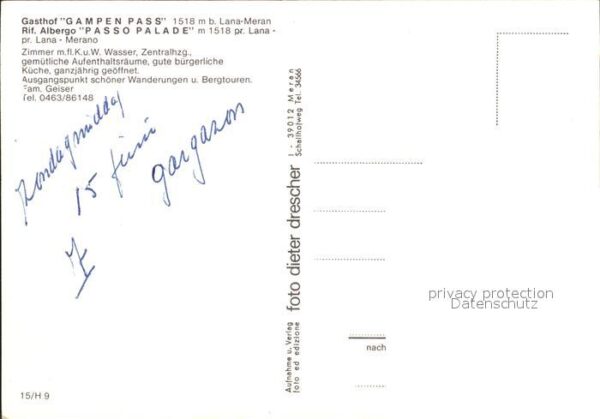 Gasthof "GAMPEN PASS" 1518 m b. Lana-Meran
Rif. Albergo "PASSO PALADE" m 1518 pr. Lana -
pr. Lana - Merano
Zimmer m.fl.K.u.W. Wasser, Zentralhzg.,
gemütliche Aufenthaltsräume, gute bürgerliche
Küche, ganzjährig geöffnet.
Ausgangspunkt schöner Wanderungen u. Bergtouren.
Fam. Geiser
Tel. 0463/86148
Zondagmiddag
15 juni
gargazon
Aufnahme u. Verlag
foto ed edizione
foto dieter drescher
I - 39012 Meran
Schaffhofweg Tel. 34566
privacy protection
Datenschutz
nach
15/H 9